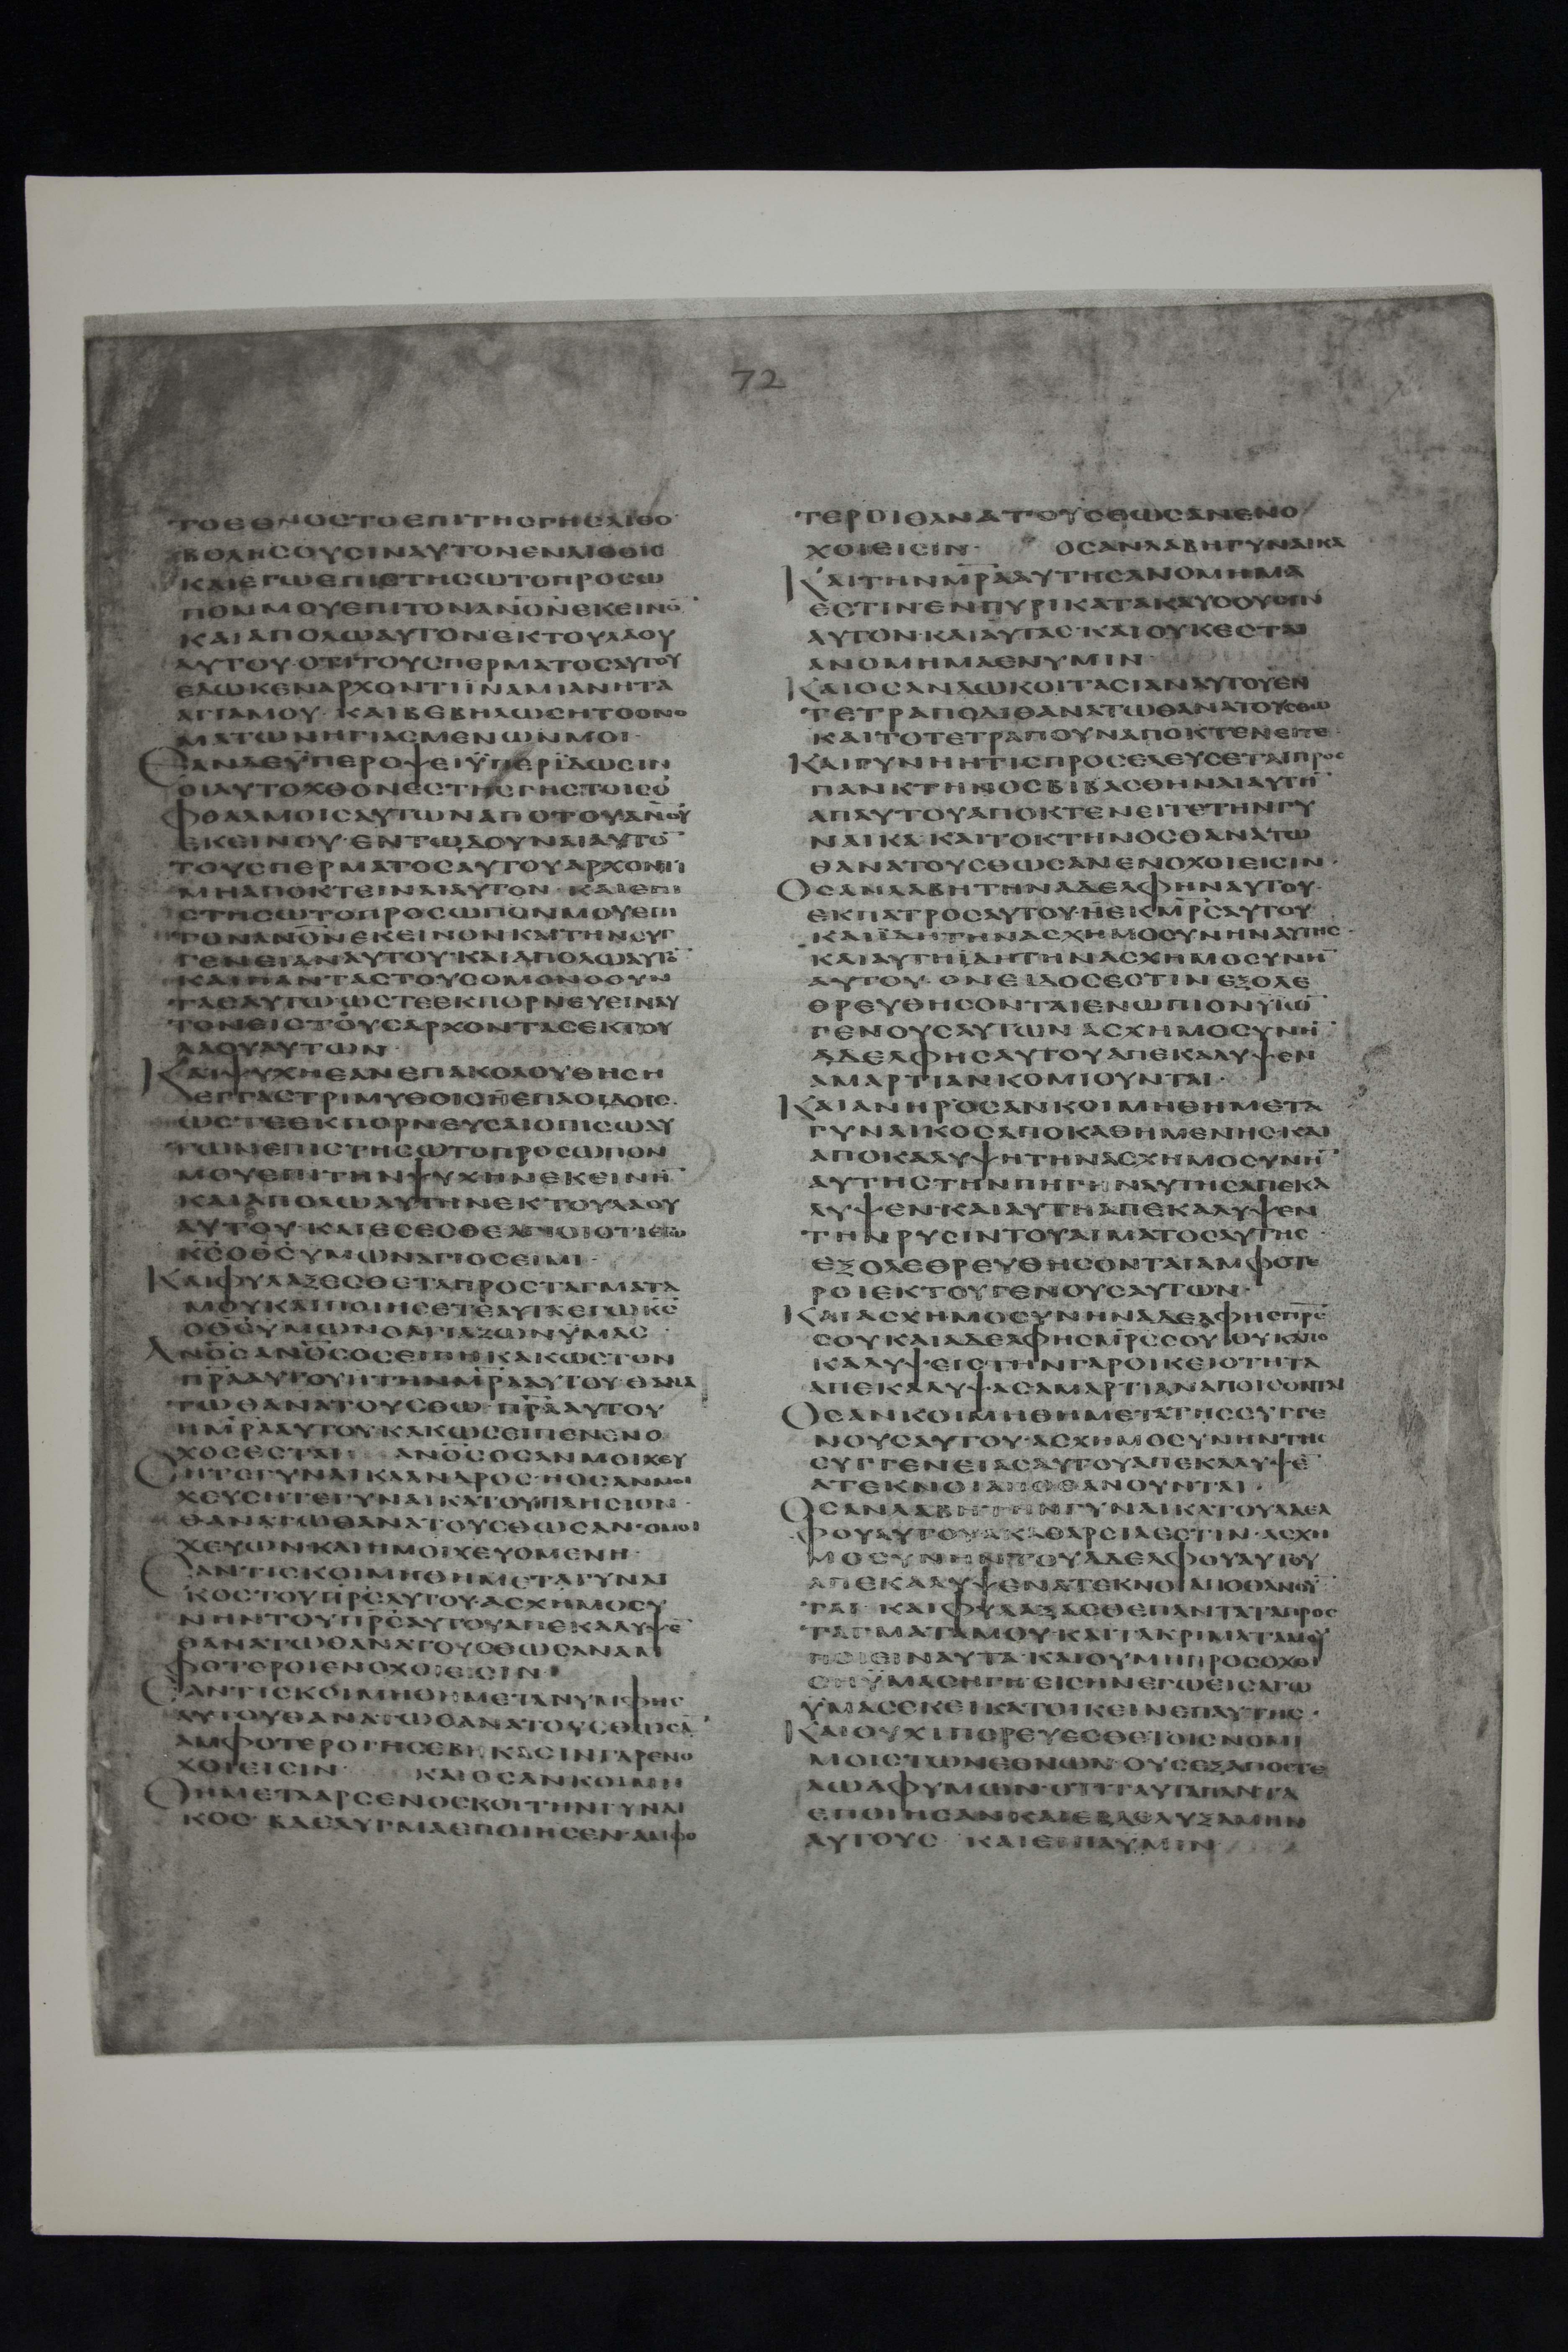 72
ΤΟΕΘΝΟϹΤΟΕΠΙΤΗϹΓΗϹΛΙΘΟ
ΒΟΛΗϹΟΥϹΙΝΑΥΤΟΝΕΝΛΙΘΟΙϹ
ΚΑΙΕΓΩΕΠΙϹΤΗϹΩΤΟΠΡΟϹΩ
ΠΟΝΜΟΥΕΠΙΤΟΝΑΝ̅Ο̅Ν̅ΕΚΕΙΝΟ̅
ΚΑΙΑΠΟΛΩΑΥΤΟΝΕΚΤΟΥΛΑΟΥ
ΑΥΤΟΥ·ΟΤΙΤΟΥϹΠΕΡΜΑΤΟϹΑΥΤΟΥ
ΕΔΩΚΕΝΑΡΧΟΝΤΙΪΝΑΜΙΑΝΗΤΑ
ΑΓΙΑΜΟΥ· ΚΑΙΒΕΒΗΛΩϹΗΤΟΟΝΟ
ΜΑΤΩΝΗΓΙΑϹΜΕΝΩΝΜΟΙ·
ΕΑΝΔΕΫΠΕΡΟΨΕΙΫΠΕΡΙΔΩϹΙΝ
ΟΙΑΥΤΟΧΘΟΝΕϹΤΗϹΓΗϹΤΟΙϹΟ
ΦΘΑΛΜΟΙϹΑΥΤΩΝΑΠΟΤΟΥΑΝ̅Ο̅Υ̅
ΕΚΕΙΝΟΥ·ΕΝΤΩΔΟΥΝΑΙΑΥΤΟ̅
ΤΟΥϹΠΕΡΜΑΤΟϹΑΥΤΟΥΑΡΧΟΝΤΙ
ΜΗΑΠΟΚΤΕΙΝΑΙΑΥΤΟΝ·ΚΑΙΕΠΙ
ϹΤΗϹΩΤΟΠΡΟϹΩΠΟΝΜΟΥΕΠΙ
ΤΟΝΑΝ̅Ο̅Ν̅ΕΚΕΙΝΟΝΚΑΙΤΗΝϹΥΓ
ΓΕΝΕΙΑΝΑΥΤΟΥ·ΚΑΙΑΠΟΛΩΑΥΤΟ̅
ΚΑΙΠΑΝΤΑϹΤΟΥϹΟΜΟΝΟΟΥΝ
ΤΑϹΑΥΤΩΩϹΤΕΕΚΠΟΡΝΕΥΕΙΝΑΥ
ΤΟΝΕΙϹΤΟΥϹΑΡΧΟΝΤΑϹΕΚΤΟΥ
ΛΑΟΥΑΥΤΩΝ
ΚΑΙΨΥΧΗΕΑΝΕΠΑΚΟΛΟΥΘΗϹΗ
ΕΓΓΑϹΤΡΙΜΥΘΟΙϹΗΕΠΑΟΙΔΟΙϹ·
ΩϹΤΕΕΚΠΟΡΝΕΥϹΑΙΟΠΙϹΩΑΥ
ΤΩΝΕΠΙϹΤΗϹΩΤΟΠΡΟϹΩΠΟΝ
ΜΟΥΕΠΙΤΗΝΨΥΧΗΝΕΚΕΙΝΗ̅
ΚΑΙΑΠΟΛΩΑΥΤΗΝΕΚΤΟΥΛΑΟΥ
ΑΥΤΟΥ·ΚΑΙΕϹΕϹΘΕΑΓΙΟΙΟΤΙΕΓΩ
Κ̅Ϲ̅Ο̅Θ̅Ϲ̅ΥΜΩΝΑΓΙΟϹΕΙΜΙ·
ΚΑΙΦΥΛΑΞΕϹΘΕΤΑΠΡΟϹΤΑΓΜΑΤΑ
ΜΟΥΚΑΙΠΟΙΗϹΕΤΕΑΥΤΑΕΓΩΚ̅Ϲ̅
ΟΘ̅Ϲ̅ΥΜΩΝΟΑΓΙΑΖΩΝΥΜΑϹ·
ΑΝ̅Ο̅Ϲ̅ΑΝ̅Ο̅Ϲ̅ΟϹΕΙΠΗΚΑΚΩϹΤΟΝ
Π̅Ρ̅Α̅ΑΥΤΟΥΗΤΗΝΜ̅Ρ̅Α̅ΑΥΤΟΥ·ΘΑΝΑ
ΤΩΘΑΝΑΤΟΥϹΘΩ·Π̅Ρ̅Α̅ΑΥΤΟΥ
ΗΜ̅Ρ̅Α̅ΑΥΤΟΥΚΑΚΩϹΕΙΠΕΝΕΝΟ
ΧΟϹΕϹΤΑΙ· ΑΝ̅Ο̅Ϲ̅ΟϹΑΝΜΟΙΧΕΥ
ϹΗΤΕΓΥΝΑΙΚΑΑΝΔΡΟϹ·ΗΟϹΑΝΜΟΙ
ΧΕΥϹΗΤΕΓΥΝΑΙΚΑΤΟΥΠΛΗϹΙΟΝ·
ΘΑΝΑΤΩΘΑΝΑΤΟΥϹΘΩϹΑΝ·ΟΜΟΙ
ΧΕΥΩΝ·ΚΑΙΗΜΟΙΧΕΥΟΜΕΝΗ·
ΕΑΝΤΙϹΚΟΙΜΗΘΗΜΕΤΑΓΥΝΑΙ
ΚΟϹΤΟΥΠ̅Ρ̅Ϲ̅ΑΥΤΟΥ·ΑϹΧΗΜΟϹΥ
ΝΗΝΤΟΥΠ̅Ρ̅Ϲ̅ΑΥΤΟΥΑΠΕΚΑΛΥΨΕ̅
ΘΑΝΑΤΩΘΑΝΑΤΟΥϹΘΩϹΑΝΑΜ
ΦΟΤΕΡΟΙΕΝΟΧΟΙΕΙϹΙΝ·
ΕΑΝΤΙϹΚΟΙΜΗΘΗΜΕΤΑΝΥΜΦΗϹ
ΑΥΤΟΥΘΑΝΑΤΩΘΑΝΑΤΟΥϹΘΩϹΑ̅
ΑΜΦΟΤΕΡΟΙΗϹΕΒΗΚΑϹΙΝΓΑΡΕΝΟ
ΧΟΙΕΙϹΙΝ· ΚΑΙΟϹΑΝΚΟΙΜΗ
ΘΗΜΕΤΑΑΡϹΕΝΟϹΚΟΙΤΗΝΓΥΝΑΙ
ΚΟϹ· ΒΔΕΛΥΓΜΑΕΠΟΙΗϹΕΝ·ΑΜΦΟ
ΤΕΡΟΙΘΑΝΑΤΟΥϹΘΩϹΑΝΕΝΟ
ΧΟΙΕΙϹΙΝ· ΟϹΑΝΛΑΒΗΓΥΝΑΙΚΑ
ΚΑΙΤΗΝΜ̅Ρ̅Α̅ΑΥΤΗϹΑΝΟΜΗΜΑ
ΕϹΤΙΝ·ΕΝΠΥΡΙΚΑΤΑΚΑΥϹΟΥϹΙΝ
ΑΥΤΟΝ·ΚΑΙΑΥΤΑϹ·ΚΑΙΟΥΚΕϹΤΑΙ
ΑΝΟΜΗΜΑΕΝΥΜΙΝ
ΚΑΙΟϹΑΝΔΩΚΟΙΤΑϹΙΑΝΑΥΤΟΥΕΝ
ΤΕΤΡΑΠΟΔΙΘΑΝΑΤΩΘΑΝΑΤΟΥϹΘΩ
ΚΑΙΤΟΤΕΤΡΑΠΟΥΝΑΠΟΚΤΕΝΕΙΤΕ·
ΚΑΙΓΥΝΗΗΤΙϹΠΡΟϹΕΛΕΥϹΕΤΑΙΠΡΟϹ
ΠΑΝΚΤΗΝΟϹΒΙΒΑϹΘΗΝΑΙΑΥΤΗ̅
ΑΠΑΥΤΟΥΑΠΟΚΤΕΝΕΙΤΕΤΗΝΓΥ
ΝΑΙΚΑ·ΚΑΙΤΟΚΤΗΝΟϹΘΑΝΑΤΩ
ΘΑΝΑΤΟΥϹΘΩϹΑΝΕΝΟΧΟΙΕΙϹΙΝ·
ΟϹΑΝΛΑΒΗΤΗΝΑΔΕΛΦΗΝΑΥΤΟΥ·
ΕΚΠΑΤΡΟϹΑΥΤΟΥ·ΗΕΚΜ̅Ρ̅Ϲ̅ΑΥΤΟΥ·
ΚΑΙΪΔΗΤΗΝΑϹΧΗΜΟϹΥΝΗΝΑΥΤΗϹ·
ΚΑΙΑΥΤΗΪΔΗΤΗΝΑϹΧΗΜΟϹΥΝΗ̅
ΑΥΤΟΥ·ΟΝΕΙΔΟϹΕϹΤΙΝΕΞΟΛΕ
ΘΡΕΥΘΗϹΟΝΤΑΙΕΝΩΠΙΟΝΥΙΩ̅
ΓΕΝΟΥϹΑΥΤΩΝΑϹΧΗΜΟϹΥΝΗ̅
ΑΔΕΛΦΗϹΑΥΤΟΥΑΠΕΚΑΛΥΨΕΝ
ΑΜΑΡΤΙΑΝΚΟΜΙΟΥΝΤΑΙ·
ΚΑΙΑΝΗΡΟϹΑΝΚΟΙΜΗΘΗΜΕΤΑ
ΓΥΝΑΙΚΟϹΑΠΟΚΑΘΗΜΕΝΗϹ·ΚΑΙ
ΑΠΟΚΑΛΥΨΗΤΗΝΑϹΧΗΜΟϹΥΝΗ̅
ΑΥΤΗϹΤΗΝΠΗΓΗΝΑΥΤΗϹΑΠΕΚΑ
ΛΥΨΕΝ·ΚΑΙΑΥΤΗΑΠΕΚΑΛΥΨΕΝ
ΤΗΝΡΥϹΙΝΤΟΥΑΙΜΑΤΟϹΑΥΤΗϹ·
ΕΞΟΛΕΘΡΕΥΘΗϹΟΝΤΑΙΑΜΦΟΤΕ
ΡΟΙΕΚΤΟΥΓΕΝΟΥϹΑΥΤΩΝ·
ΚΑΙΑϹΧΗΜΟϹΥΝΗΝΑΔΕΛΦΗϹΠ̅Ρ̅Ϲ̅
ϹΟΥΚΑΙΑΔΕΛΦΗϹΜ̅Ρ̅Ϲ̅ϹΟΥΟΥΚΑΠΟ
ΚΑΛΥΨΕΙϹΤΗΝΓΑΡΟΙΚΕΙΟΤΗΤΑ
ΑΠΕΚΑΛΥΨΑϹΑΜΑΡΤΙΑΝΑΠΟΙϹΟΝΤΑΙ
ΟϹΑΝΚΟΙΜΗΘΗΜΕΤΑΤΗϹϹΥΓΓΕ
ΝΟΥϹΑΥΤΟΥ·ΑϹΧΗΜΟϹΥΝΗΝΤΗϹ
ϹΥΓΓΕΝΕΙΑϹΑΥΤΟΥΑΠΕΚΑΛΥΨΕ̅
ΑΤΕΚΝΟΙΑΠΟΘΑΝΟΥΝΤΑΙ·
ΟϹΑΝΛΑΒΗΤΗΝΓΥΝΑΙΚΑΤΟΥΑΔΕΛ
ΦΟΥΑΥΤΟΥΑΚΑΘΑΡϹΙΑΕϹΤΙΝ·ΑϹΧΗ
ΜΟϹΥΝΗΝΤΟΥΑΔΕΛΦΟΥΑΥΤΟΥ
ΑΠΕΚΑΛΥΨΕΝΑΤΕΚΝΟΙΑΠΟΘΑΝΟΥ̅
ΤΑΙ· ΚΑΙΦΥΛΑΞΑϹΘΕΠΑΝΤΑΤΑΠΡΟϹ
ΤΑΓΜΑΤΑΜΟΥ·ΚΑΙΤΑΚΡΙΜΑΤΑΜΟΥ
ΠΟΙΕΙΝΑΥΤΑ·ΚΑΙΟΥΜΗΠΡΟϹΟΧΘΙ
ϹΗΫΜΑϹΗΓΗΕΙϹΗΝΕΓΩΕΙϹΑΓΩ
ΫΜΑϹΕΚΕΙΚΑΤΟΙΚΕΙΝΕΠΑΥΤΗϹ·
ΚΑΙΟΥΧΙΠΟΡΕΥΕϹΘΕΤΟΙϹΝΟΜΙ
ΜΟΙϹΤΩΝΕΘΝΩΝ·ΟΥϹΕΞΑΠΟϹΤΕ
ΛΩΑΦΥΜΩΝ·ΟΤΙΤΑΥΤΑΠΑΝΤΑ
ΕΠΟΙΗϹΑΝ·ΚΑΙΕΒΔΕΛΥΞΑΜΗΝ
ΑΥΤΟΥϹ· ΚΑΙΕΙΠΑΥΜΙΝ